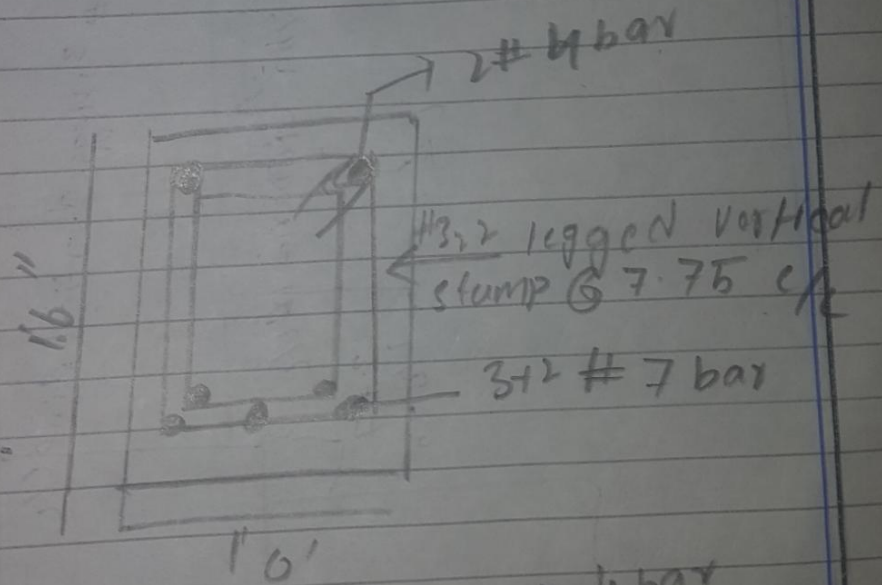 2# 4 bar
#3,2 legged vertical
stump @ 7.75 c/c
3+2 # 7 bar
1'6"
1" 0'
bar